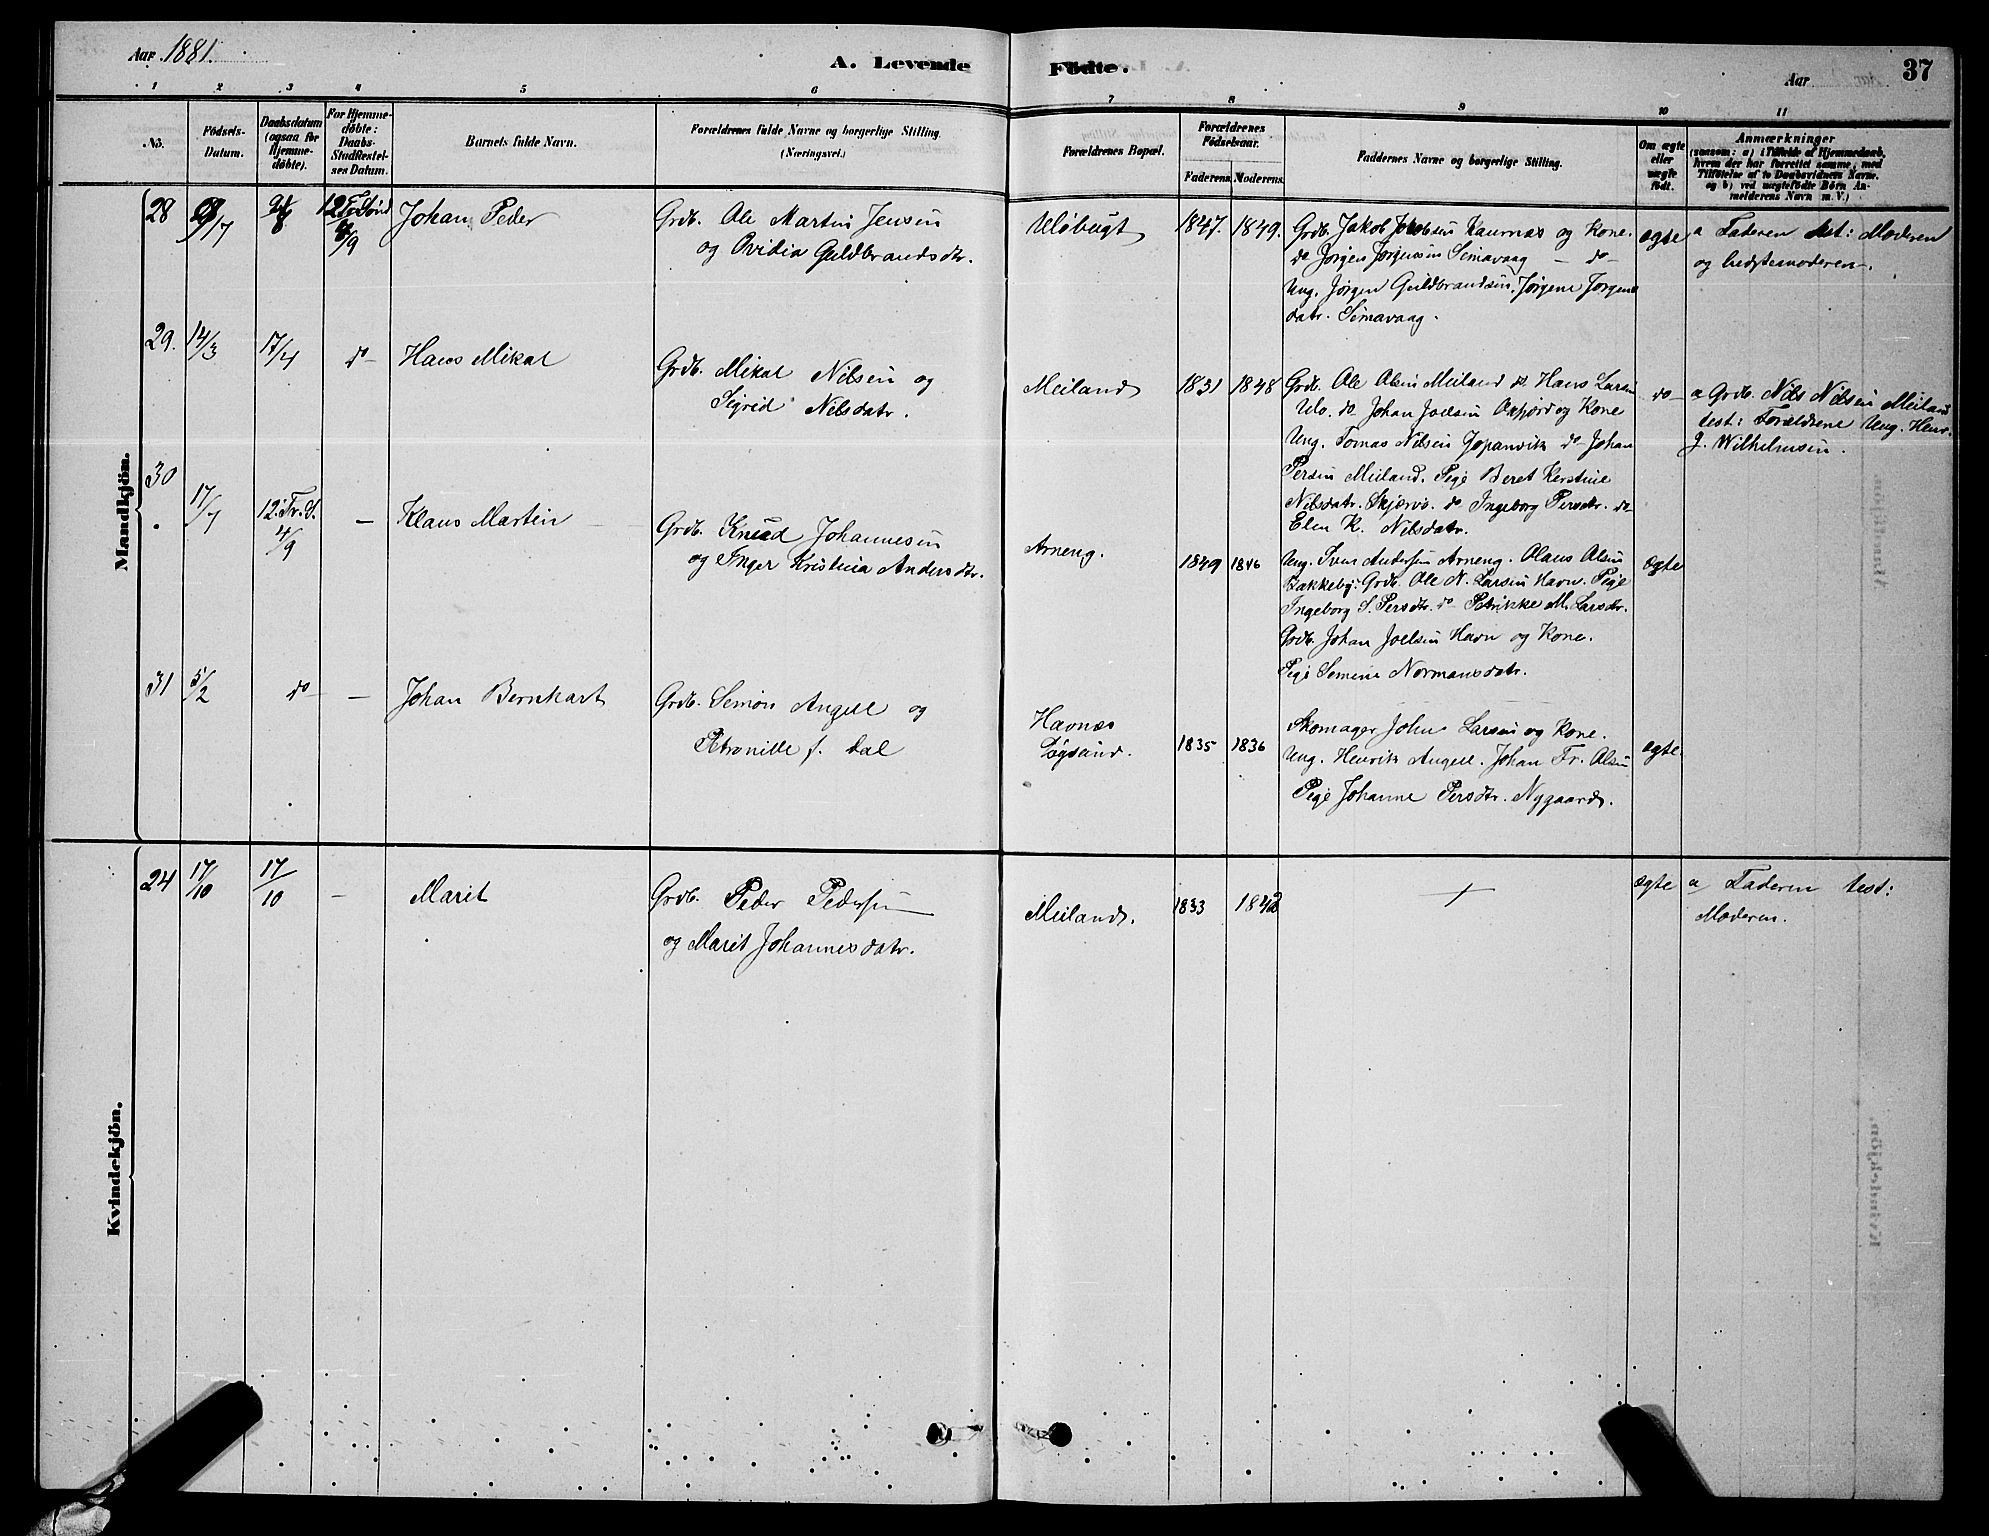 Aar 1881.
A. Levende
Fødte.
Aar
37
1 2 3 4 5 6 7 8 9 10 11
No.
Fødsels-
Datum.
Daabsdatum
(ogsaa for
Hjemme-
døbte).
For Hjemme-
døbte:
Daabs-
Stadfæstel-
ses Datum.
Barnets fulde Navn.
Forældrenes fulde Navne og borgerlige Stilling.
(Næringsvei.)
Forældrenes Bopæl.
Forældrenes
Fødselsaar.
Faderens. Moderens.
Faddernes Navne og borgerlige Stilling.
Om ægte
eller
uægte
født.
Anmærkninger
(saasom: a) i Tilfælde af Hjemmedaab,
hvem der har forrettet samme, med
Tilføielse af to Daabsvidners Navne,
og b) ved uægtefødte Børn An-
melderens Navn m. V.)
Mandkjön.
28
12
4/9
Johan Peder
Grdb. Ole Martin Jensen
og Ovidia Guldbrandsdtr.
Uløbugt
1847. 1849.
Grdb. Jakob Jakobsen Kaurnæs og Kone.
do Jørgen Jørgensen Simavaag – do –
Ung. Jørgen Guldbrandsen, Jørgine Jørgens
datr. Simavaag.
ægte
a Faderen test: Moderen
og bedstemoderen.
29.
14/3
17/4
do
Hans Mikal
Grdb. Mikal Nilsen og
Sigrid Nilsdatr.
Meiland
1831 1848
Grdb. Ole Olsen Meiland do. Hans Larsen
Ulo. do Johan Joelsen Oxfjord og Kone
Ung. Tomas Nilsen Jopanvik do Johan
Persen Meiland. Pige Beret Kerstine
Nilsdatr. Skjervø. do Ingeborg Persdtr. do
Elen K. Nilsdatr.
do
a Grdb. Nils Nilsen Meiland
test: Forældrene Ung. Henr.
J. Wilhelmsen.
30
17/7
12. Tr. S.
4/9
–
Klaus Martin
Grdb. Knud Johannesen
og Inger Kristina Andersdtr.
Arneng.
1849 1846
Ung. Iver Andersen Arneng. Olaus Olsen
Bakkeby. Grdb. Ole N. Larsen Havn. Pige
Ingeborg S. Persdtr. do Petrikke M. Larsdtr.
Grdb. Johan Joelsen Havn og Kone.
Pige Semine Normansdatr.
ægte
31
5/2
do
–
Johan Bernhart
Grdb. Simon Angell og
Petronille f. Dal
Havnæs
Løgsund.
1835 1836
Skomager John Larsen og Kone.
Ung. Henrik Angell. Johan Fr. Olsen
Pige Johanne Persdtr. Nygaard.
ægte
Kvindekjön.
24
17/10
17/10
–
Marit
Grdb. Peder Pedersen
og Marit Johannesdatr.
Meiland.
1833 1842
+
ægte
a Faderen test:
Moderen.